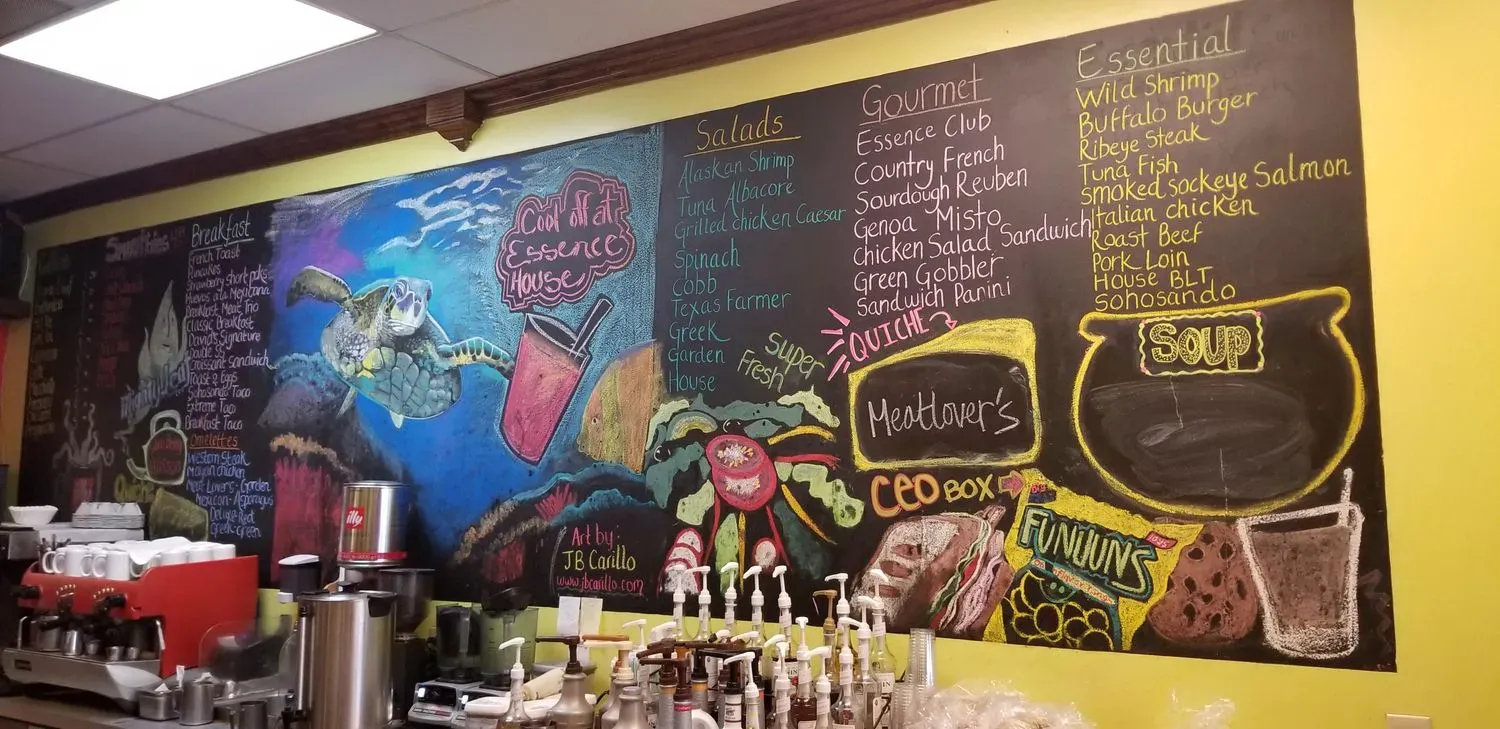 Smoothies
Breakfast
French Toast
Pancakes
Strawberry short paks
Huevos a la Mexicana
Breakfast Meat Trio
Classic Breakfast
David's Signature
Double SS
Croissant Sandwich
Toast & Eggs
Sohosando Taco
Extreme Taco
Breakfast Taco
Omelettes
Western Steak
Mayan Chicken
Meat Lovers - Garden
Mexican - Asparagus
Deluxe Red
Greek - Green
Cool off at
Essence
House
Art by:
JB Carillo
www.jbcarillo.com
illy
Salads
Alaskan Shrimp
Tuna Albacore
Grilled chicken Caesar
Spinach
Cobb
Texas Farmer
Greek
Garden
House
Super
Fresh
Gourmet
Essence Club
Country French
Sourdough Reuben
Genoa Misto
Chicken Salad Sandwich
Green Gobbler
Sandwich Panini
QUICHE
Meatlover's
CEO BOX
FUNUUNS
Essential
Wild Shrimp
Buffalo Burger
Ribeye Steak
Tuna Fish
Smoked Sockeye Salmon
Italian chicken
Roast Beef
Pork Loin
House BLT
Sohosando
SOUP